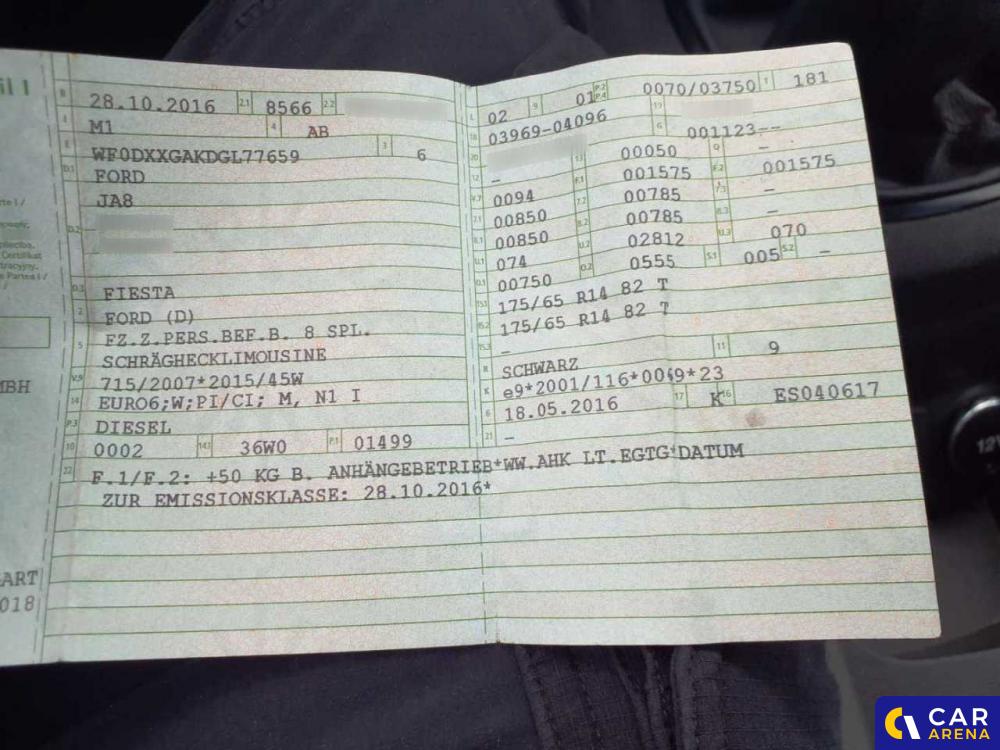 il I
B 28.10.2016 2.1 8566 2.2
J M1 4 AB
E WF0DXXGAKDGL77659 3 6
D.1 FORD
JA8
D.2
D.3 FIESTA
2 FORD (D)
5 FZ.Z.PERS.BEF.B. 8 SPL.
SCHRÄGHECKLIMOUSINE
V.9 715/2007*2015/45W
14 EURO6;W;PI/CI; M, N1 I
P.3 DIESEL
10 0002 14.1 36W0 P.1 01499
22 F.1/F.2: +50 KG B. ANHÄNGEBETRIEB*WW.AHK LT.EGTG*DATUM
ZUR EMISSIONSKLASSE: 28.10.2016*
L 02 9 01 P.2 P.4 0070/03750 T 181
18 03969-04096 19
20 G 001123--
12 - 13 00050 Q -
V.7 0094 F.1 001575 F.2 001575
7.1 00850 7.2 00785 7.3 -
8.1 00850 8.2 00785 8.3 -
U.1 074 U.2 02812 U.3 070
O.1 00750 O.2 0555 S.1 005 S.2 -
15.1 175/65 R14 82 T
15.2 175/65 R14 82 T
15.3 -
R SCHWARZ 11 9
K e9*2001/116*0049*23
6 18.05.2016 17 K 16 ES040617
21 -
rte I /
Certifikat
Partea I /
MBH
ART
018
12V
CAR
ARENA